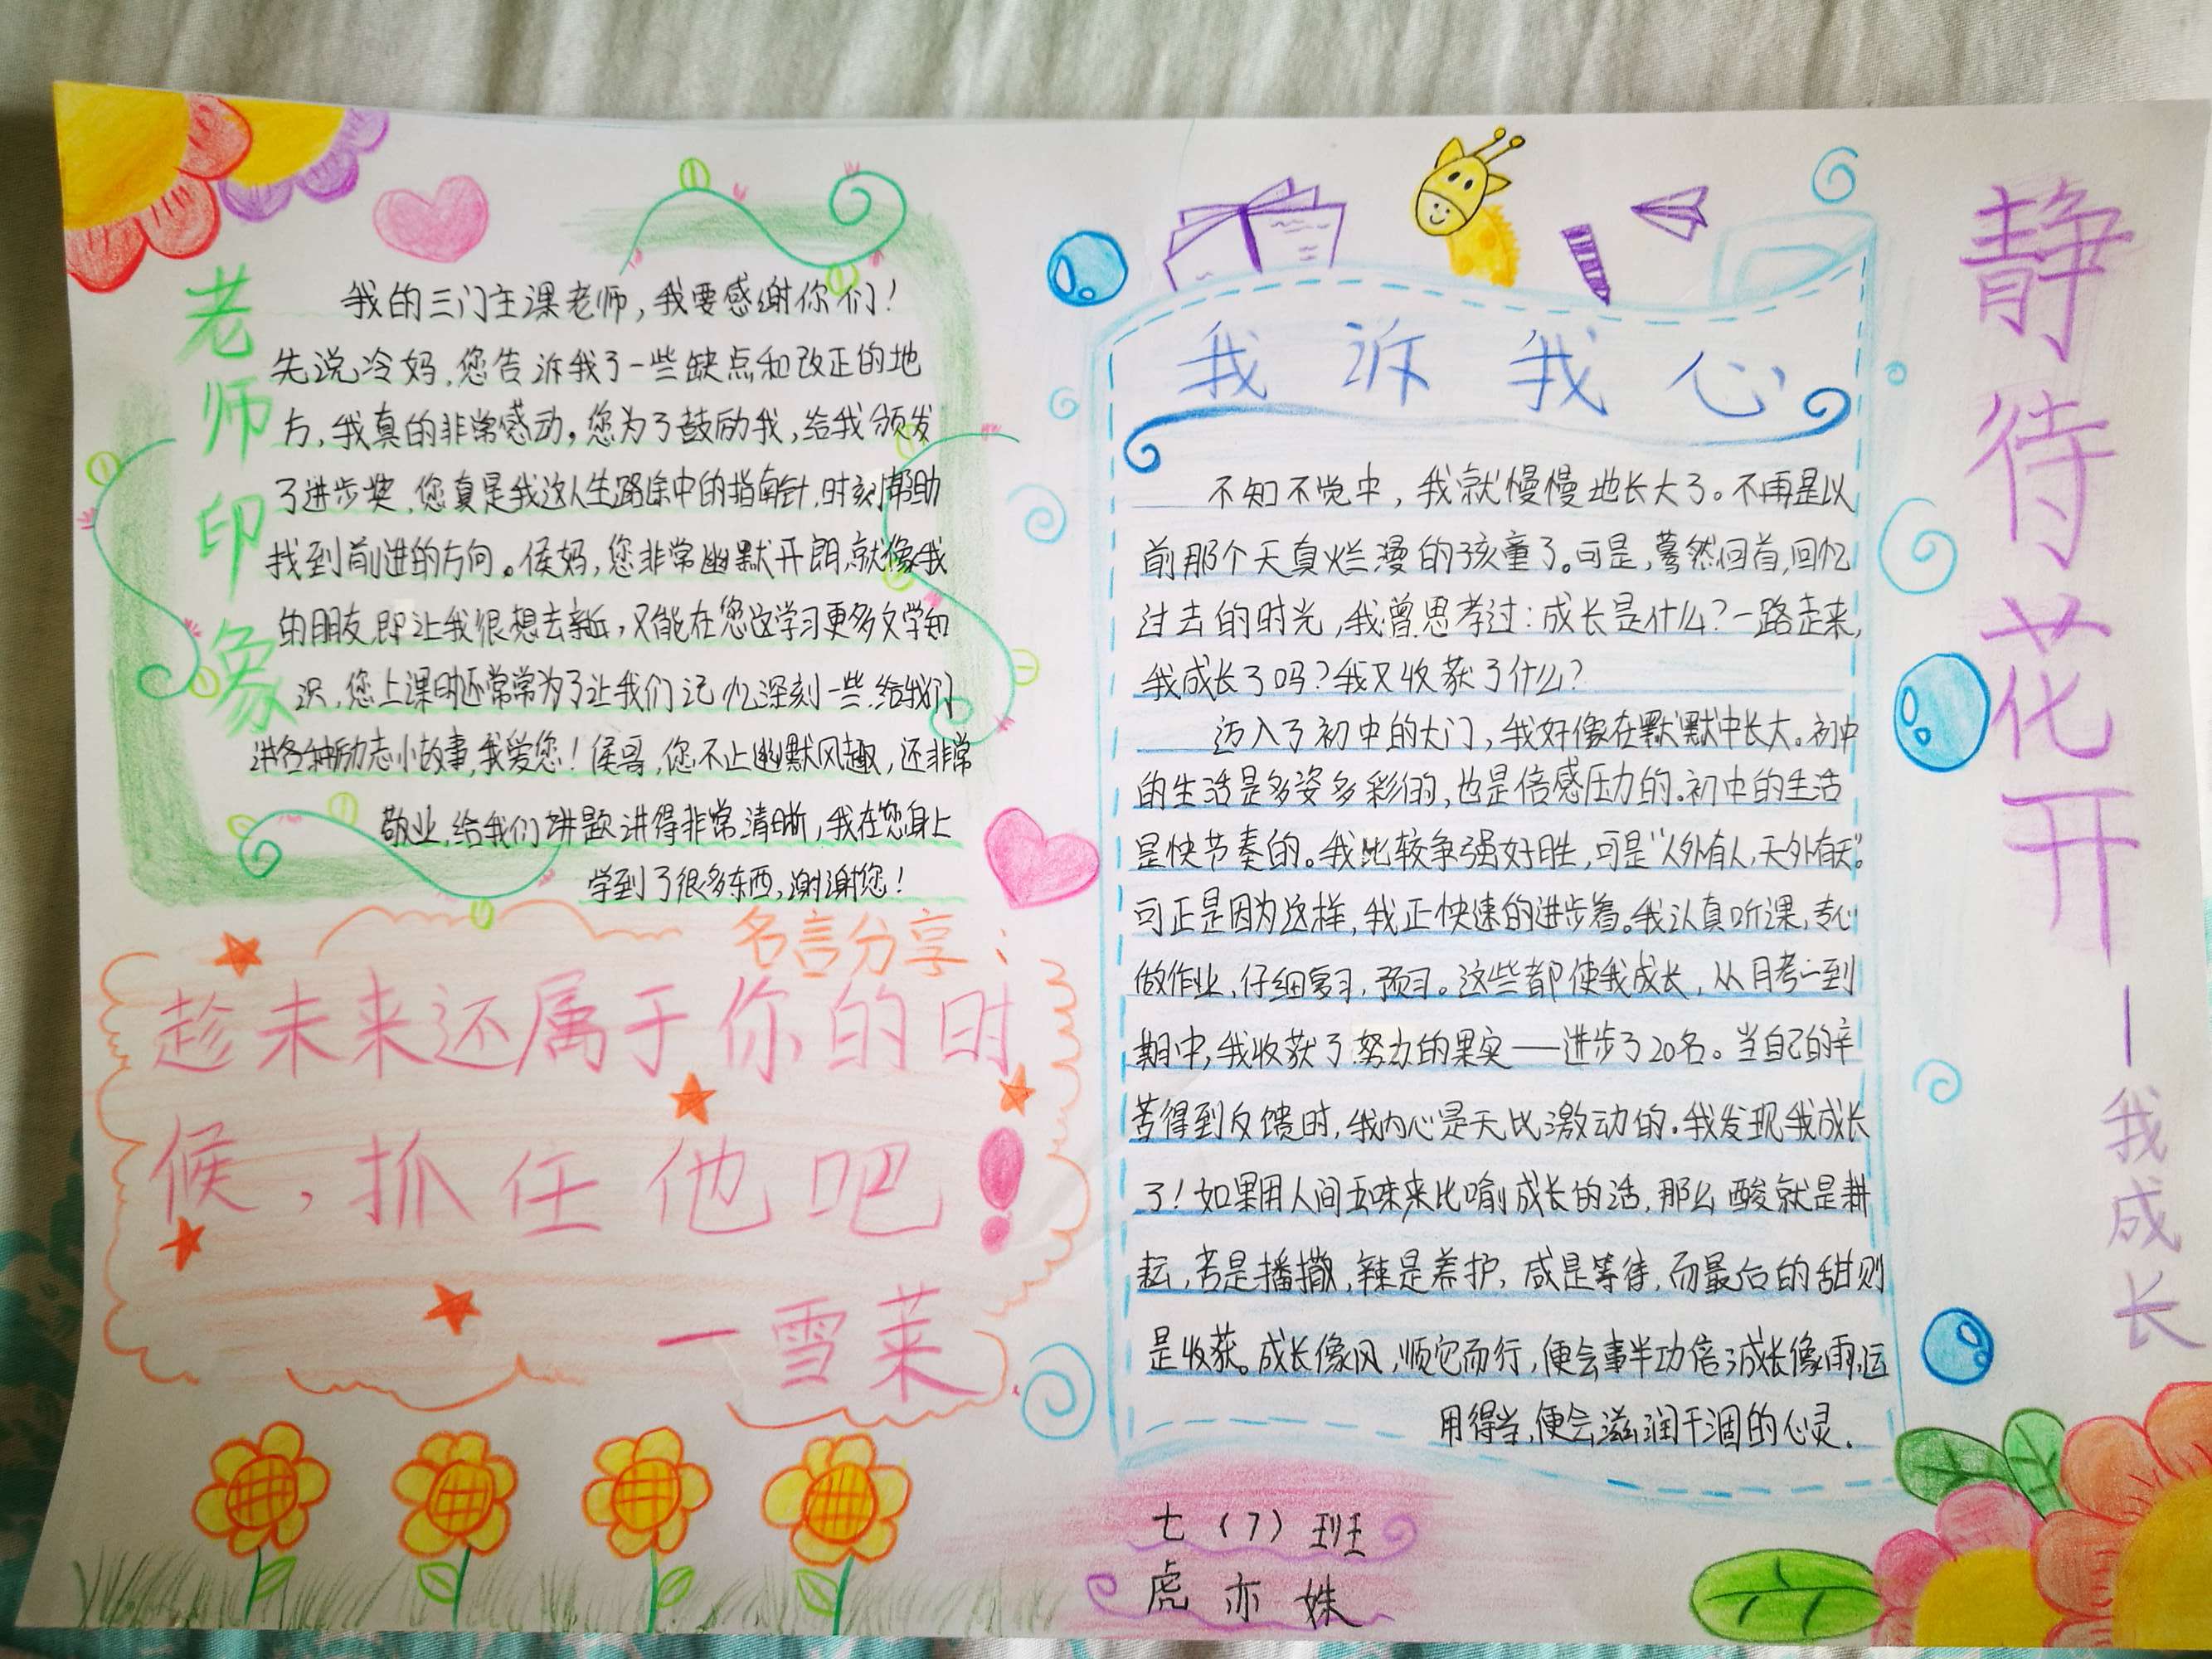 静待花开
——我成长
老师印象
我的三门主课老师，我要感谢你们！
先说冷妈，您告诉我了一些缺点和改正的地
方，我真的非常感动，您为了鼓励我，给我颁发
了进步奖，您真是我这人生路途中的指南针，时刻帮助
找到前进的方向。侯妈，您非常幽默开朗，就像我
的朋友，即让我很想去亲近，又能在您这学习更多文学知
识，您上课时还常常为了让我们记忆深刻一些，给我们
讲各种励志小故事，我爱您！侯哥，您不止幽默风趣，还非常
敬业，给我们讲题讲得非常清晰，我在您身上
学到了很多东西，谢谢您！
名言分享：
趁未来还属于你的时
候，抓住他吧！
一雪莱
我诉我心
不知不觉中，我就慢慢地长大了。不再是以
前那个天真烂漫的孩童了。可是，蓦然回首，回忆
过去的时光，我曾思考过：成长是什么？一路走来，
我成长了吗？我又收获了什么？
迈入了初中的大门，我好像在默默中长大。初中
的生活是多姿多彩的，也是倍感压力的。初中的生活
是快节奏的。我比较争强好胜，可是“人外有人，天外有天”。
可正是因为这样，我正快速的进步着。我认真听课，专心
做作业，仔细复习，预习。这些都使我成长，从月考一到
期中，我收获了努力的果实——进步了20名。当自己的辛
苦得到反馈时，我内心是无比激动的。我发现我成长
了！如果用人间五味来比喻成长的话，那么酸就是耕
耘，苦是播撒，辣是养护，咸是等待，而最后的甜则
是收获。成长像风，顺它而行，便会事半功倍；成长像雨，运
用得当，便会滋润干涸的心灵。
七（7）班
虎亦姝